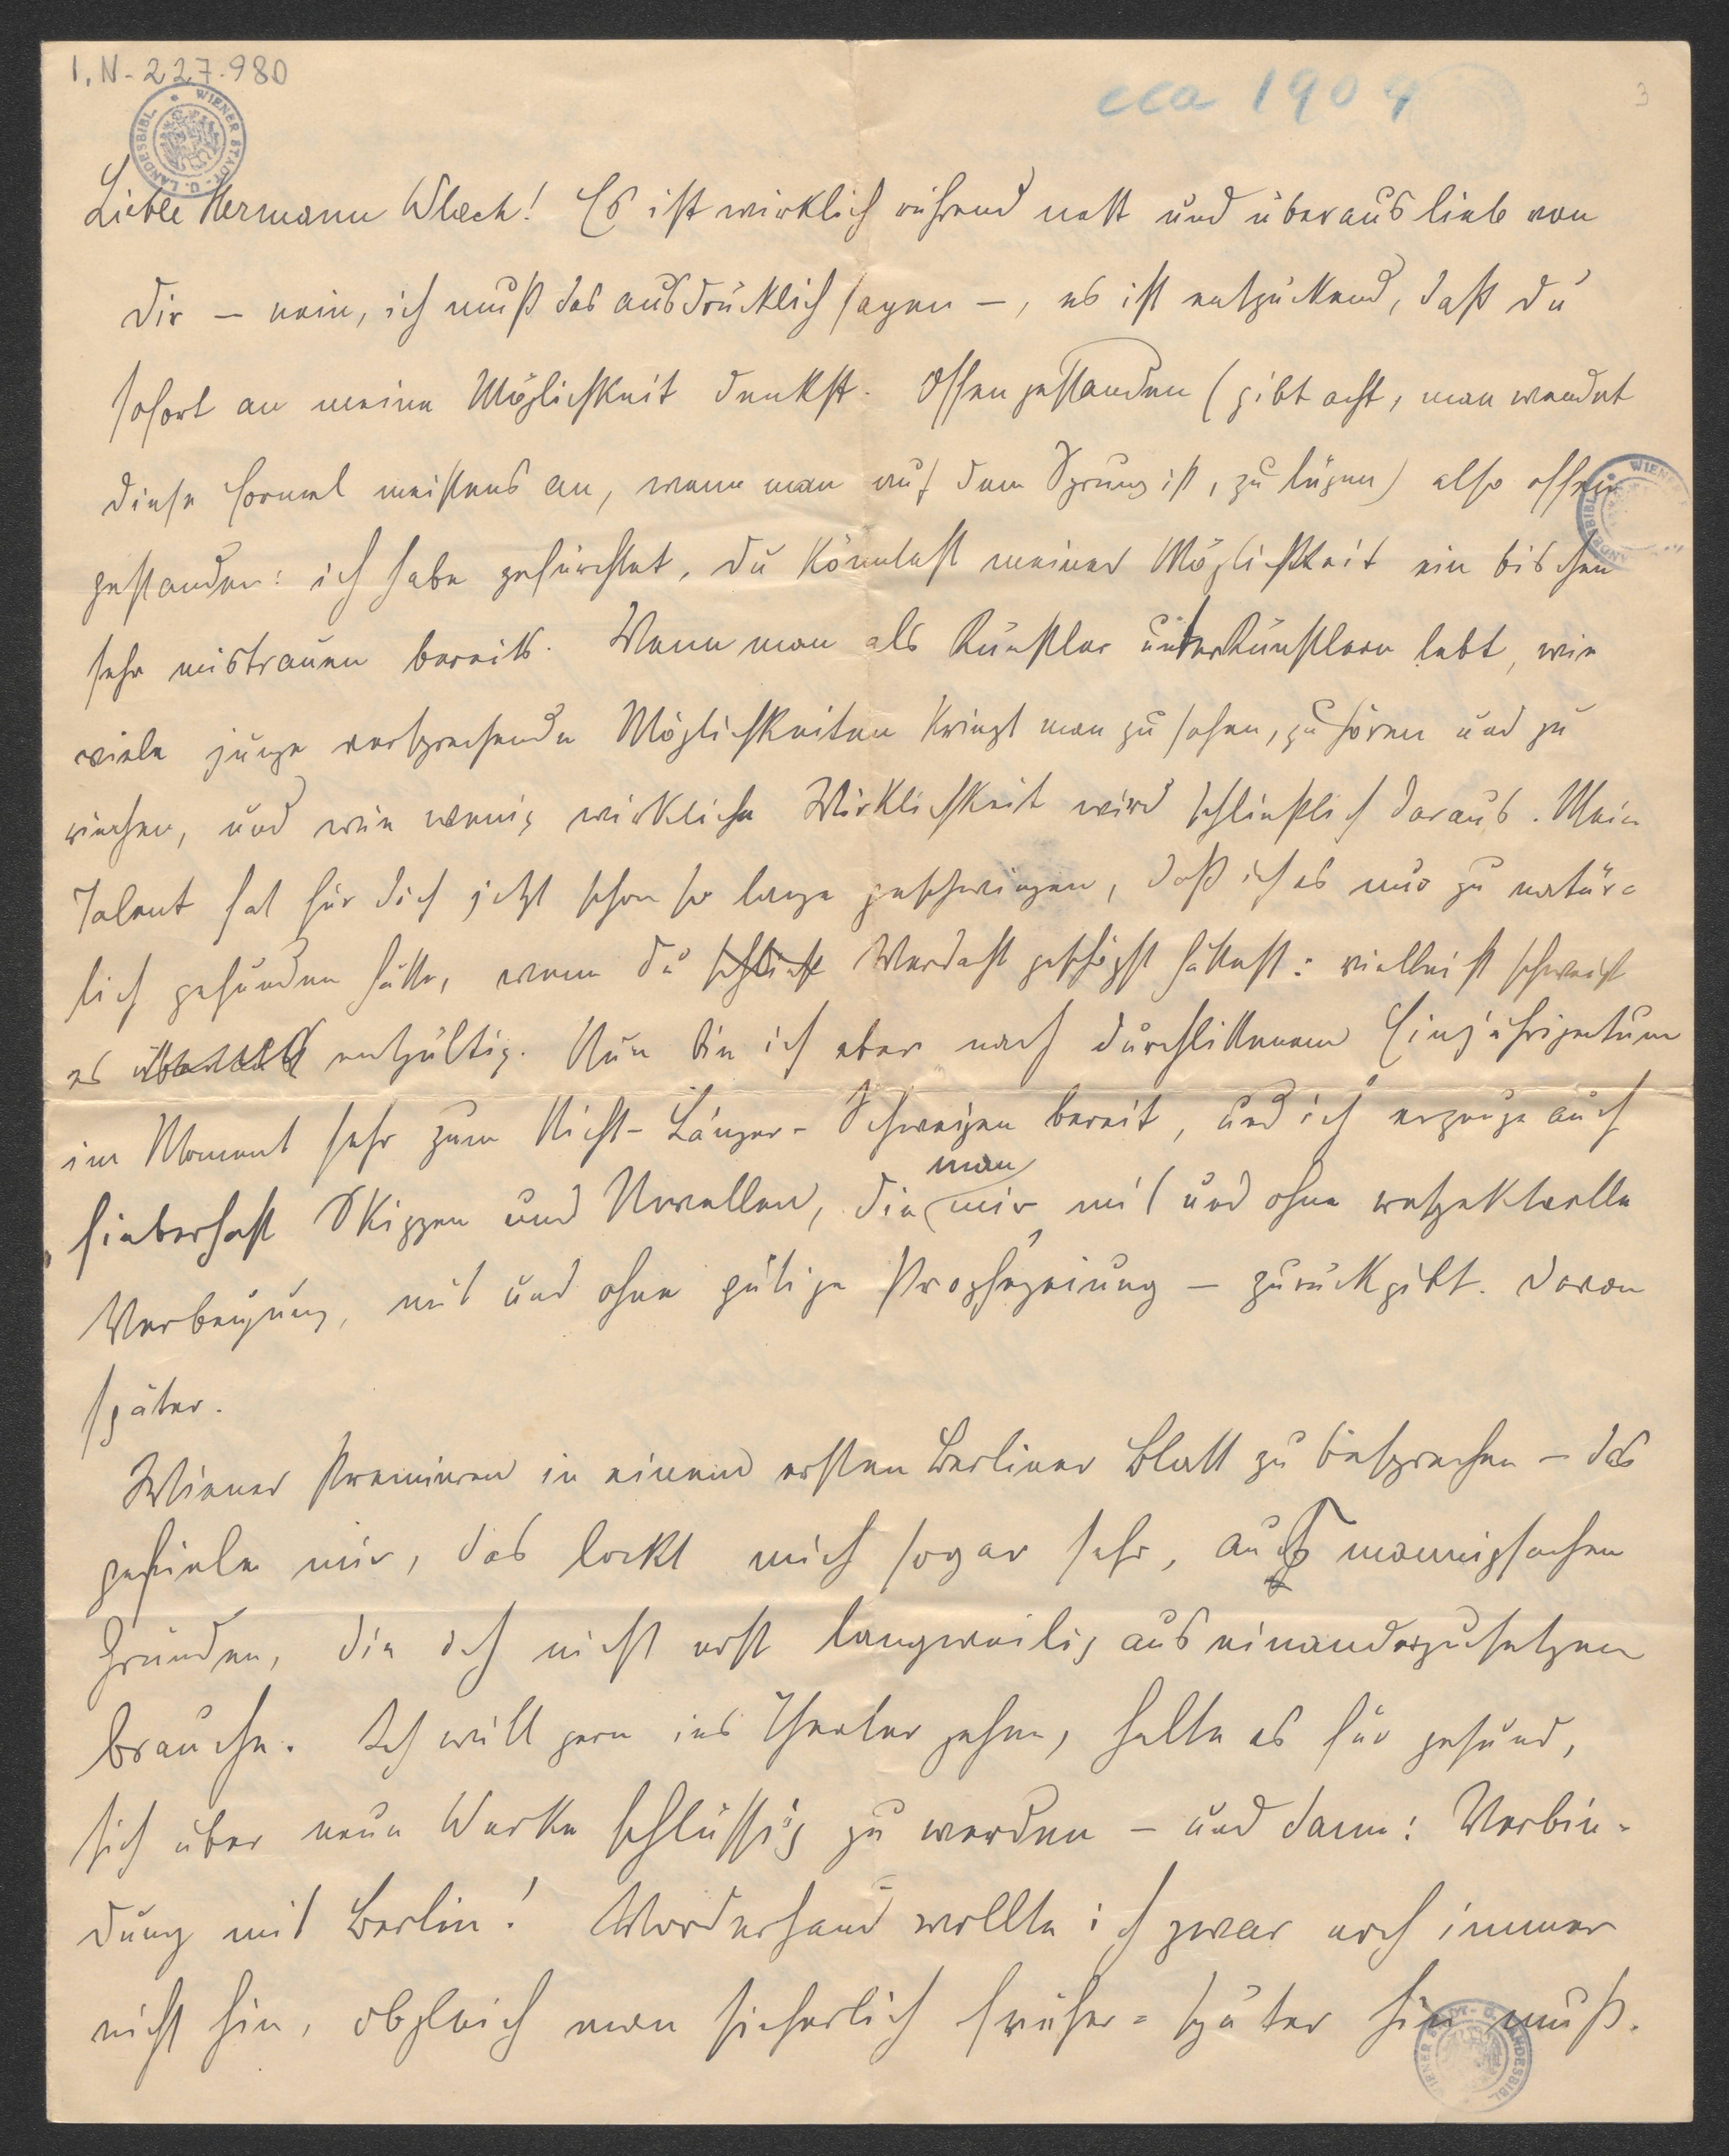 I. N - 227.980
cca 1904
3
WIENER STADT- U. LANDESBIBL
Lieber Hermann Wlach! Es ist wirklich rührend nett und überaus lieb von
dir – nein, ich muß das ausdrücklich sagen –, es ist entzückend, daß du
sofort an meine Möglichkeit denkst. Offen gestanden (gibt acht, man wendet
diese Formel meistens an, wenn man auf dem Sprung ist, zu lügen) also offen
gestanden: ich habe gefürchtet, du könntest meiner Möglichkeit ein bischen
sehr mistrauen bereits. Wenn man als Künstler unter Künstlern lebt, wie
viele junge versprechende Möglichkeiten kriegt man zu sehen, zu hören und zu
riechen, und wie wenig wirkliche Wirklichkeit wird schließlich daraus. Mein
Talent hat für dich jetzt schon so lange geschwiegen, daß ich es nur zu natür-
lich gefunden hätte, wenn du Verdacht geschöpft hättest: vielleicht schweigt
es entgültig. Nun bin ich aber nach durchlittenem Einjährigentum
im Moment sehr zum Nicht-Länger-Schweigen bereit, und ich erzeuge auch
man
fieberhaft Skizzen und Novellen, die mir mit und ohne respektvolle
Verbeugung, mit und ohne gütige Prophezeiung – zurückgibt. Davon
später.
Wiener Premieren in einem ersten Berliner Blatt zu besprechen – das
gefiele mir, das lockt mich sogar sehr, aus mannigfachen
Gründen, die ich nicht erst langweilig auseinanderzusetzen
brauche. Ich will gern ins Theater gehen, halte es für gesund,
sich über neue Werke schlüssig zu werden – und dann: Verbin-
dung mit Berlin! Vorderhand wollte ich zwar noch immer
nicht hin, obgleich man sicherlich früher-später hin muß.